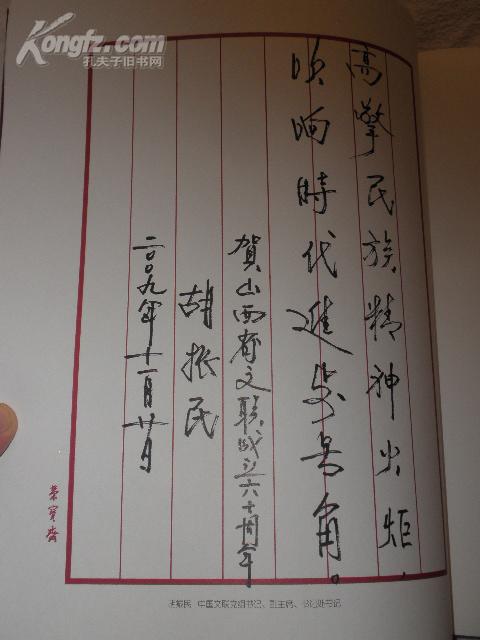 Kongfz.com
孔夫子旧书网
高擎民族精神火炬，
吹响時代進步号角。
賀山西省文联成立六十周年
胡振民
二〇〇九年十一月廿日
荣宝斋
胡振民 中国文联党组书记、副主席、书记处书记